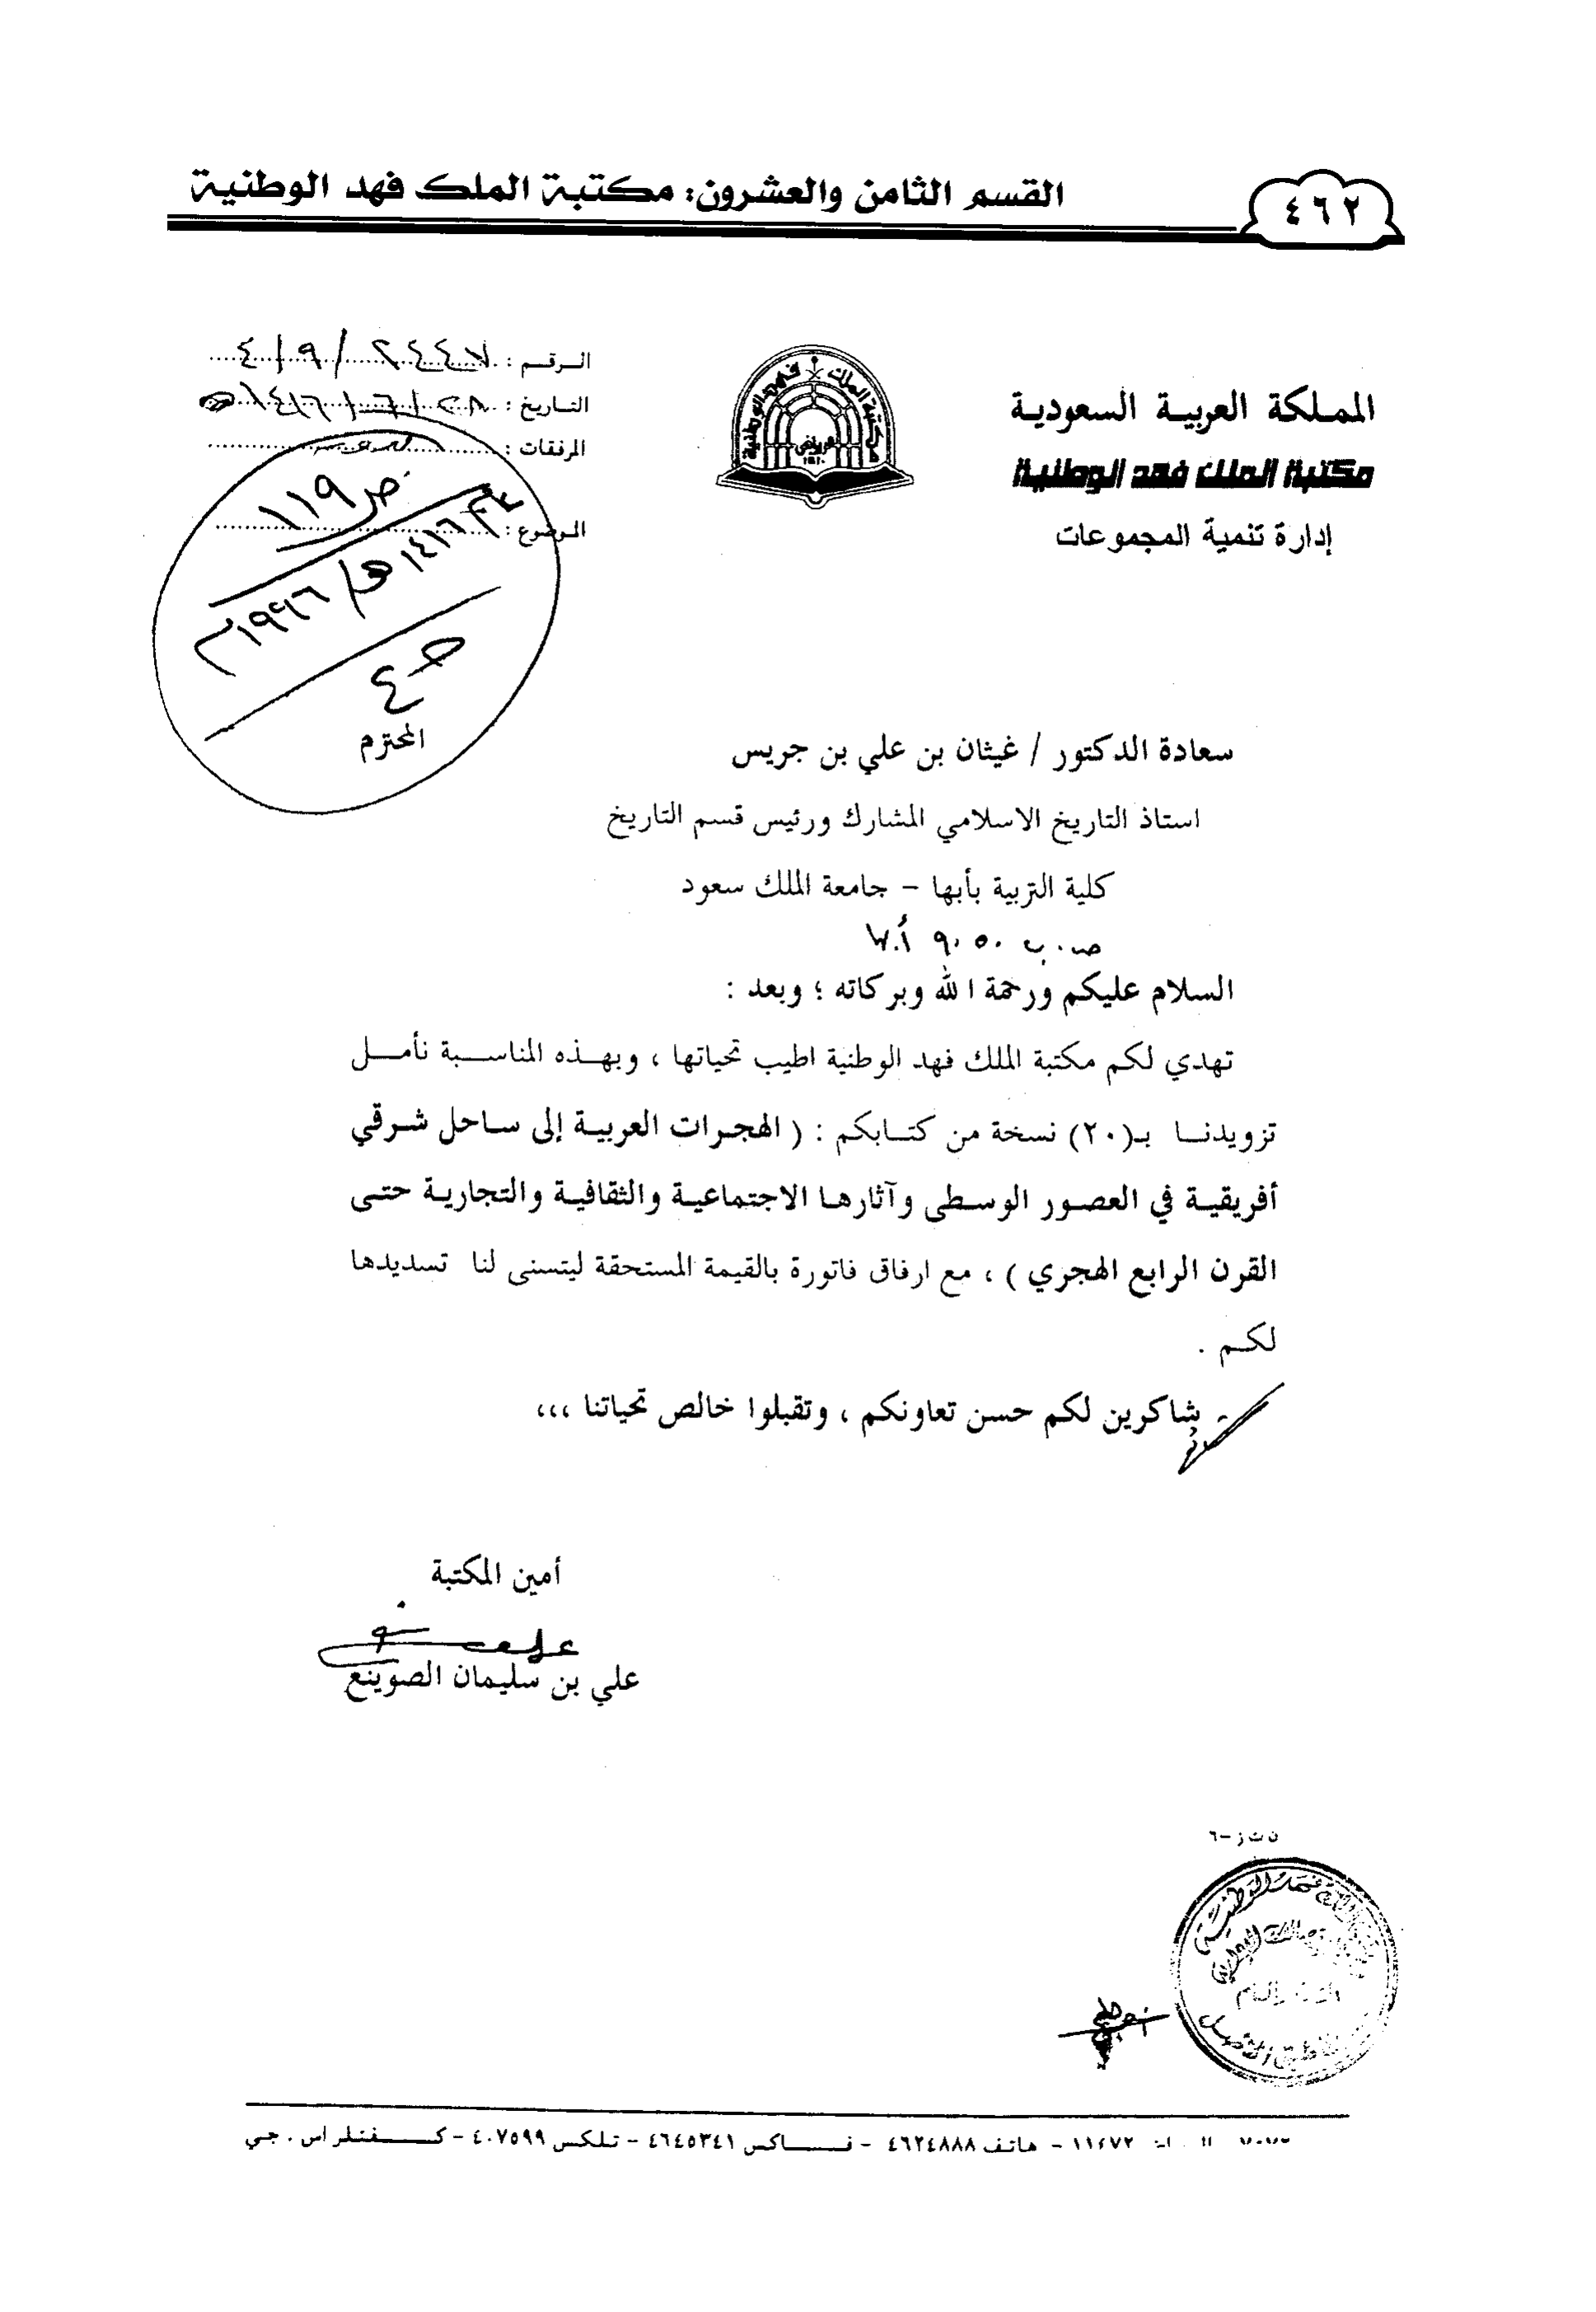 ٤٦٢
القسم الثامن والعشرون: مكتبة الملك فهد الوطنية
المملكة العربية السعودية
مكتبة الملك فهد الوطنية
إدارة تنمية المجموعات
مكتبة الملك فهد الوطنية
الرياض
الرقم :
التاريخ : ٢٨ / ٦ / ١٤١٦هـ
المرفقات :
الموضوع :
ص ١١٩
١٤١٦هـ / ١٩٩٦م
ج ٤
سعادة الدكتور / غيثان بن علي بن جريس المحترم
استاذ التاريخ الاسلامي المشارك ورئيس قسم التاريخ
كلية التربية بأبها - جامعة الملك سعود
ص . ب ٩٠٥٠ أبها
السلام عليكم ورحمة الله وبركاته ؛ وبعد :
تهدي لكم مكتبة الملك فهد الوطنية اطيب تحياتها ، وبهذه المناسبة نأمل
تزويدنا بـ(٢٠) نسخة من كتابكم : ( الهجرات العربية إلى ساحل شرقي
أفريقية في العصور الوسطى وآثارها الاجتماعية والثقافية والتجارية حتى
القرن الرابع الهجري ) ، مع ارفاق فاتورة بالقيمة المستحقة ليتسنى لنا تسديدها
لكم .
شاكرين لكم حسن تعاونكم ، وتقبلوا خالص تحياتنا ،،،
أمين المكتبة
علي بن سليمان الصوينع
ن ت ز -٦
١١٤٧٢ - هاتف ٤٦٢٤٨٨٨ - فاكس ٤٦٤٥٣٤١ - تلكس ٤٠٧٥٩٩ - كفنلر اس . جي